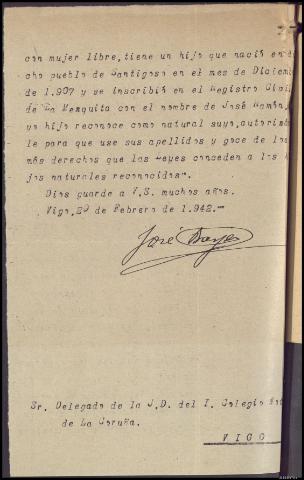 con mujer libre, tiene un hijo que nació en di
cho pueblo de Santigoso en el mes de Diciem
de 1.907 y se inscribió en el Registro Civi
de La Mezquita con el nombre de José Ramón,
yo hijo reconoce como natural suyo, autorizán
le para que use sus apellidos y goce de los
más derechos que las Leyes conceden a los h
jos naturales reconocidos".
Dios guarde a V.S. muchos años.
Vigo, 20 de Febrero de 1.942.--
José
Sr. Delegado de la J.D. del I. Colegio Not
de La Coruña.
VIGO